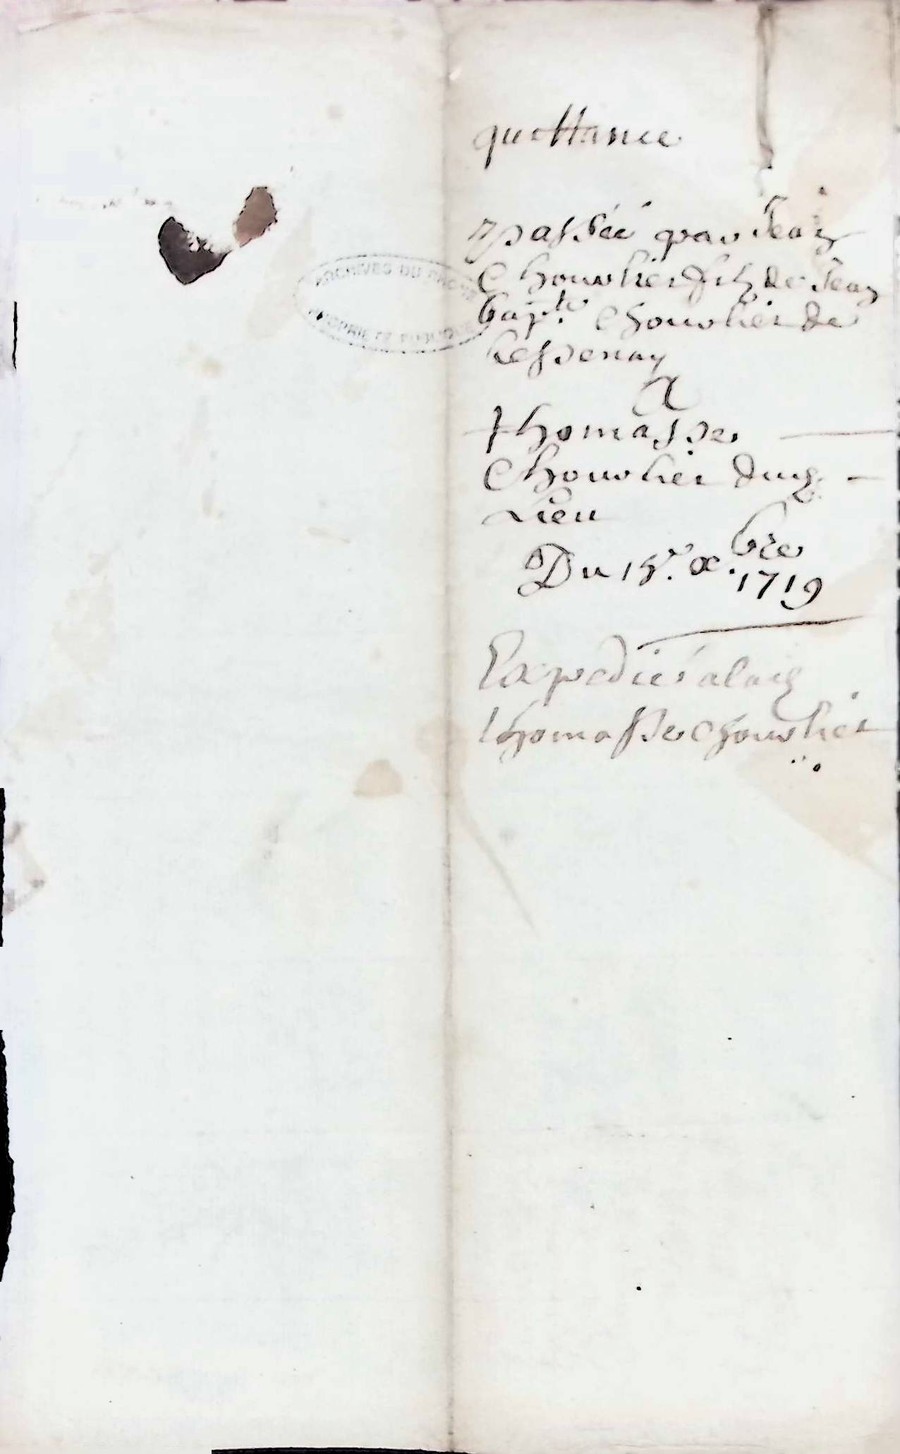 quittance
passée par Jean
Chouvlier filz de Jean
bapte. Chouvlier de
Lessenay
A
thomasse
Chouvlier dud.
Lieu
Du 18e. xbre
1719
Expediée a lad.
thomasse Chouvlier
ARCHIVES DU RHONE
PROPRIETE PUBLIQUE